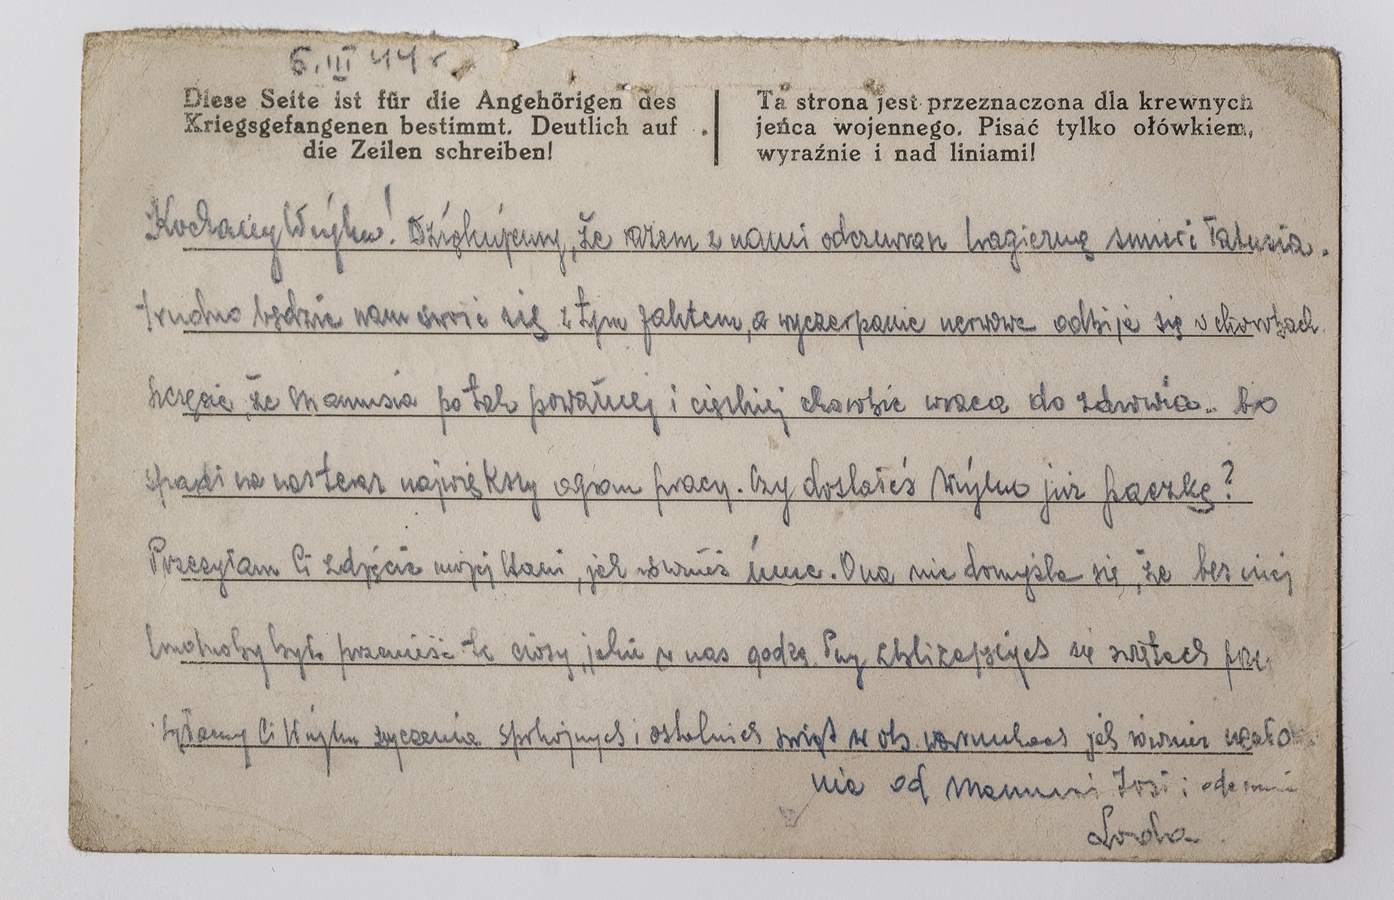 6.III 44 r.
Diese Seite ist für die Angehörigen des
Kriegsgefangenen bestimmt. Deutlich auf
die Zeilen schreiben!
Ta strona jest przeznaczona dla krewnych
jeńca wojennego. Pisać tylko ołówkiem,
wyraźnie i nad liniami!
Kochany Wujku! Dziękujemy, że razem z nami odczuwasz tragiczną śmierć Tatusia.
trudno będzie nam się z tym faktem, a wyczerpanie nerwowe odbija się w chorobach
szczęście, że Mamusia po tak poważnej i ciężkiej chorobie wraca do zdrowia.. bo
spada na nas teraz największy ogrom pracy. Czy dostałeś Wujku już paczkę?
Przesyłam Ci zdjęcie mojej jak również inne. Ona nie domyśla się, że bez niej
trudno by było przenieść te ciosy, jakie w nas godzą. Przy zbliżających się świętach prze
syłamy Ci Wujku życzenia spokojnych i ostatnich świąt w ob. warunkach jak również ucało
nia od Mamusi Józi i ode mnie